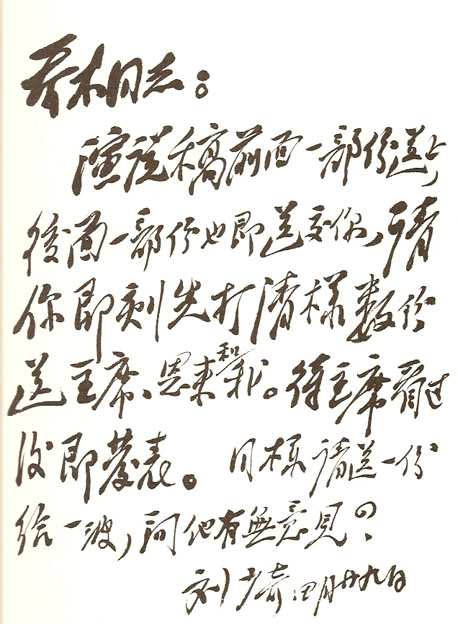 乔木同志：
演说稿前面一部份送上，
後面一部份也即送交你，请
你即刻先打清样数份
送主席、恩来和我。待主席看过
後即發表。同样请送一份
给一波，问他有無意見？
刘少奇 四月廿九日